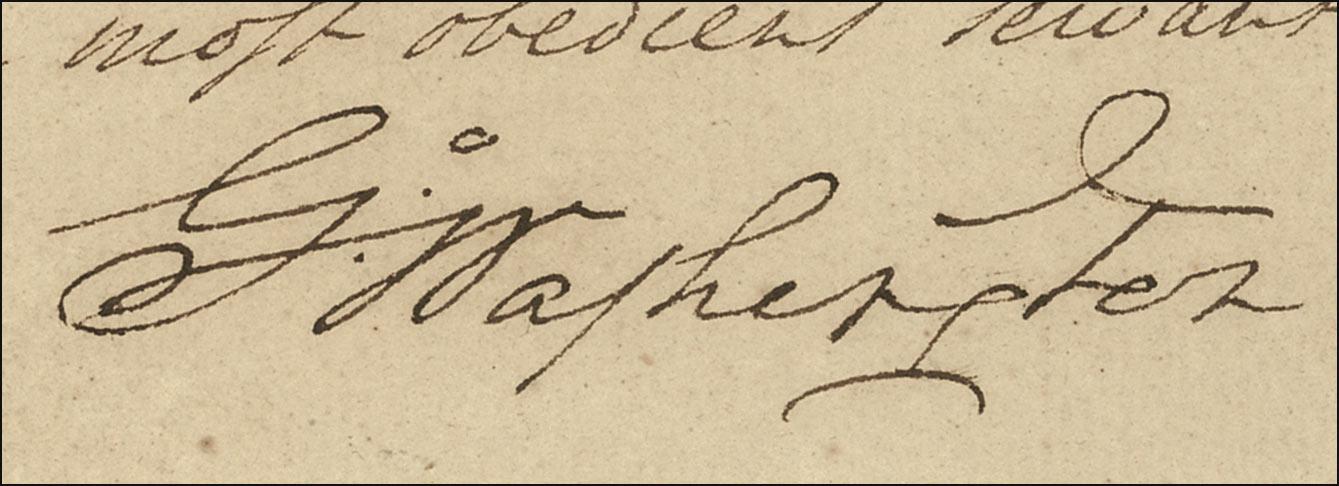 most obedient servant
G:Washington